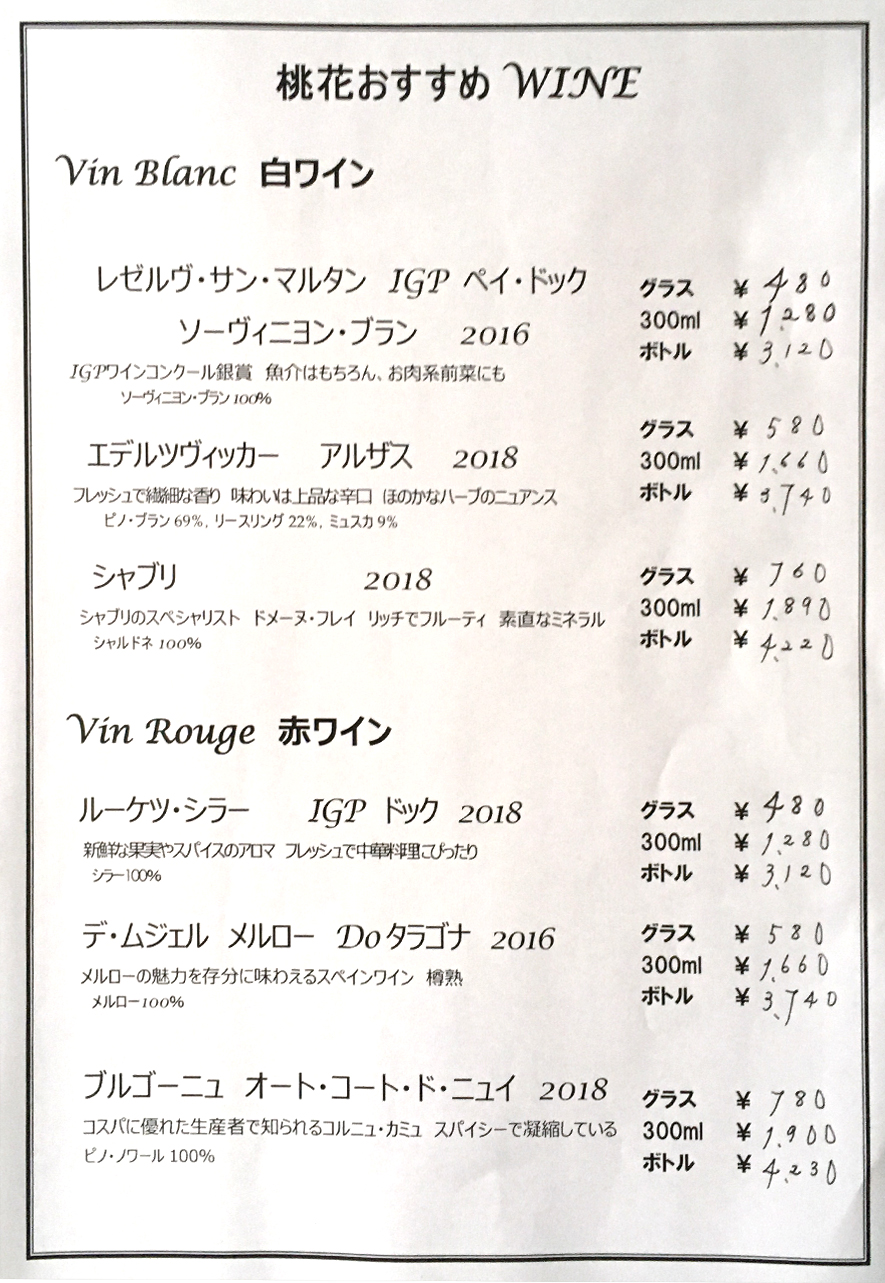 桃花おすすめ WINE
Vin Blanc 白ワイン
レゼルヴ・サン・マルタン IGP ペイ・ドック グラス ¥ 480
ソーヴィニヨン・ブラン 2016 300ml ¥ 1,280
ボトル ¥ 3,120
IGPワインコンクール銀賞 魚介はもちろん、お肉系前菜にも
ソーヴィニヨン・ブラン 100%
グラス ¥ 580
エデルツヴィッカー アルザス 2018 300ml ¥ 1,660
フレッシュで繊細な香り 味わいは上品な辛口 ほのかなハーブのニュアンス ボトル ¥ 3,740
ピノ・ブラン 69%, リースリング 22%, ミュスカ 9%
シャブリ 2018 グラス ¥ 760
シャブリのスペシャリスト ドメーヌ・フレイ リッチでフルーティ 素直なミネラル 300ml ¥ 1,890
シャルドネ 100% ボトル ¥ 4,220
Vin Rouge 赤ワイン
ルーケツ・シラー IGP ドック 2018 グラス ¥ 480
新鮮な果実やスパイスのアロマ フレッシュで中華料理にぴったり 300ml ¥ 1,280
シラー100% ボトル ¥ 3,120
デ・ムジェル メルロー Do タラゴナ 2016 グラス ¥ 580
メルローの魅力を存分に味わえるスペインワイン 樽熟 300ml ¥ 1,660
メルロー100% ボトル ¥ 3,740
ブルゴーニュ オート・コート・ド・ニュイ 2018 グラス ¥ 780
コスパに優れた生産者で知られるコルニュ・カミュ スパイシーで凝縮している 300ml ¥ 1,900
ピノ・ノワール 100% ボトル ¥ 4,230